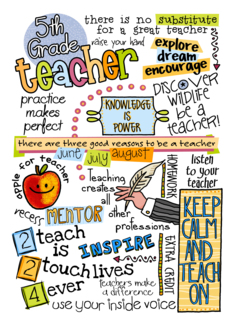 5th
Grade
teacher
there is no substitute
for a great teacher
raise your hand
explore
dream
encourage
practice
makes
perfect
KNOWLEDGE
IS
POWER
DISCOVER
WILDLIFE
be a
teacher!
there are three good reasons to be a teacher
june july august
apple for teacher
Teaching
creates
all
other
professions
HOMEWORK
listen
to your
teacher
recess
MENTOR
2 teach
is
INSPIRE
2 touch lives
4 ever
EXTRA CREDIT
KEEP
CALM
AND
TEACH
ON
Teachers make
a difference
use your inside voice